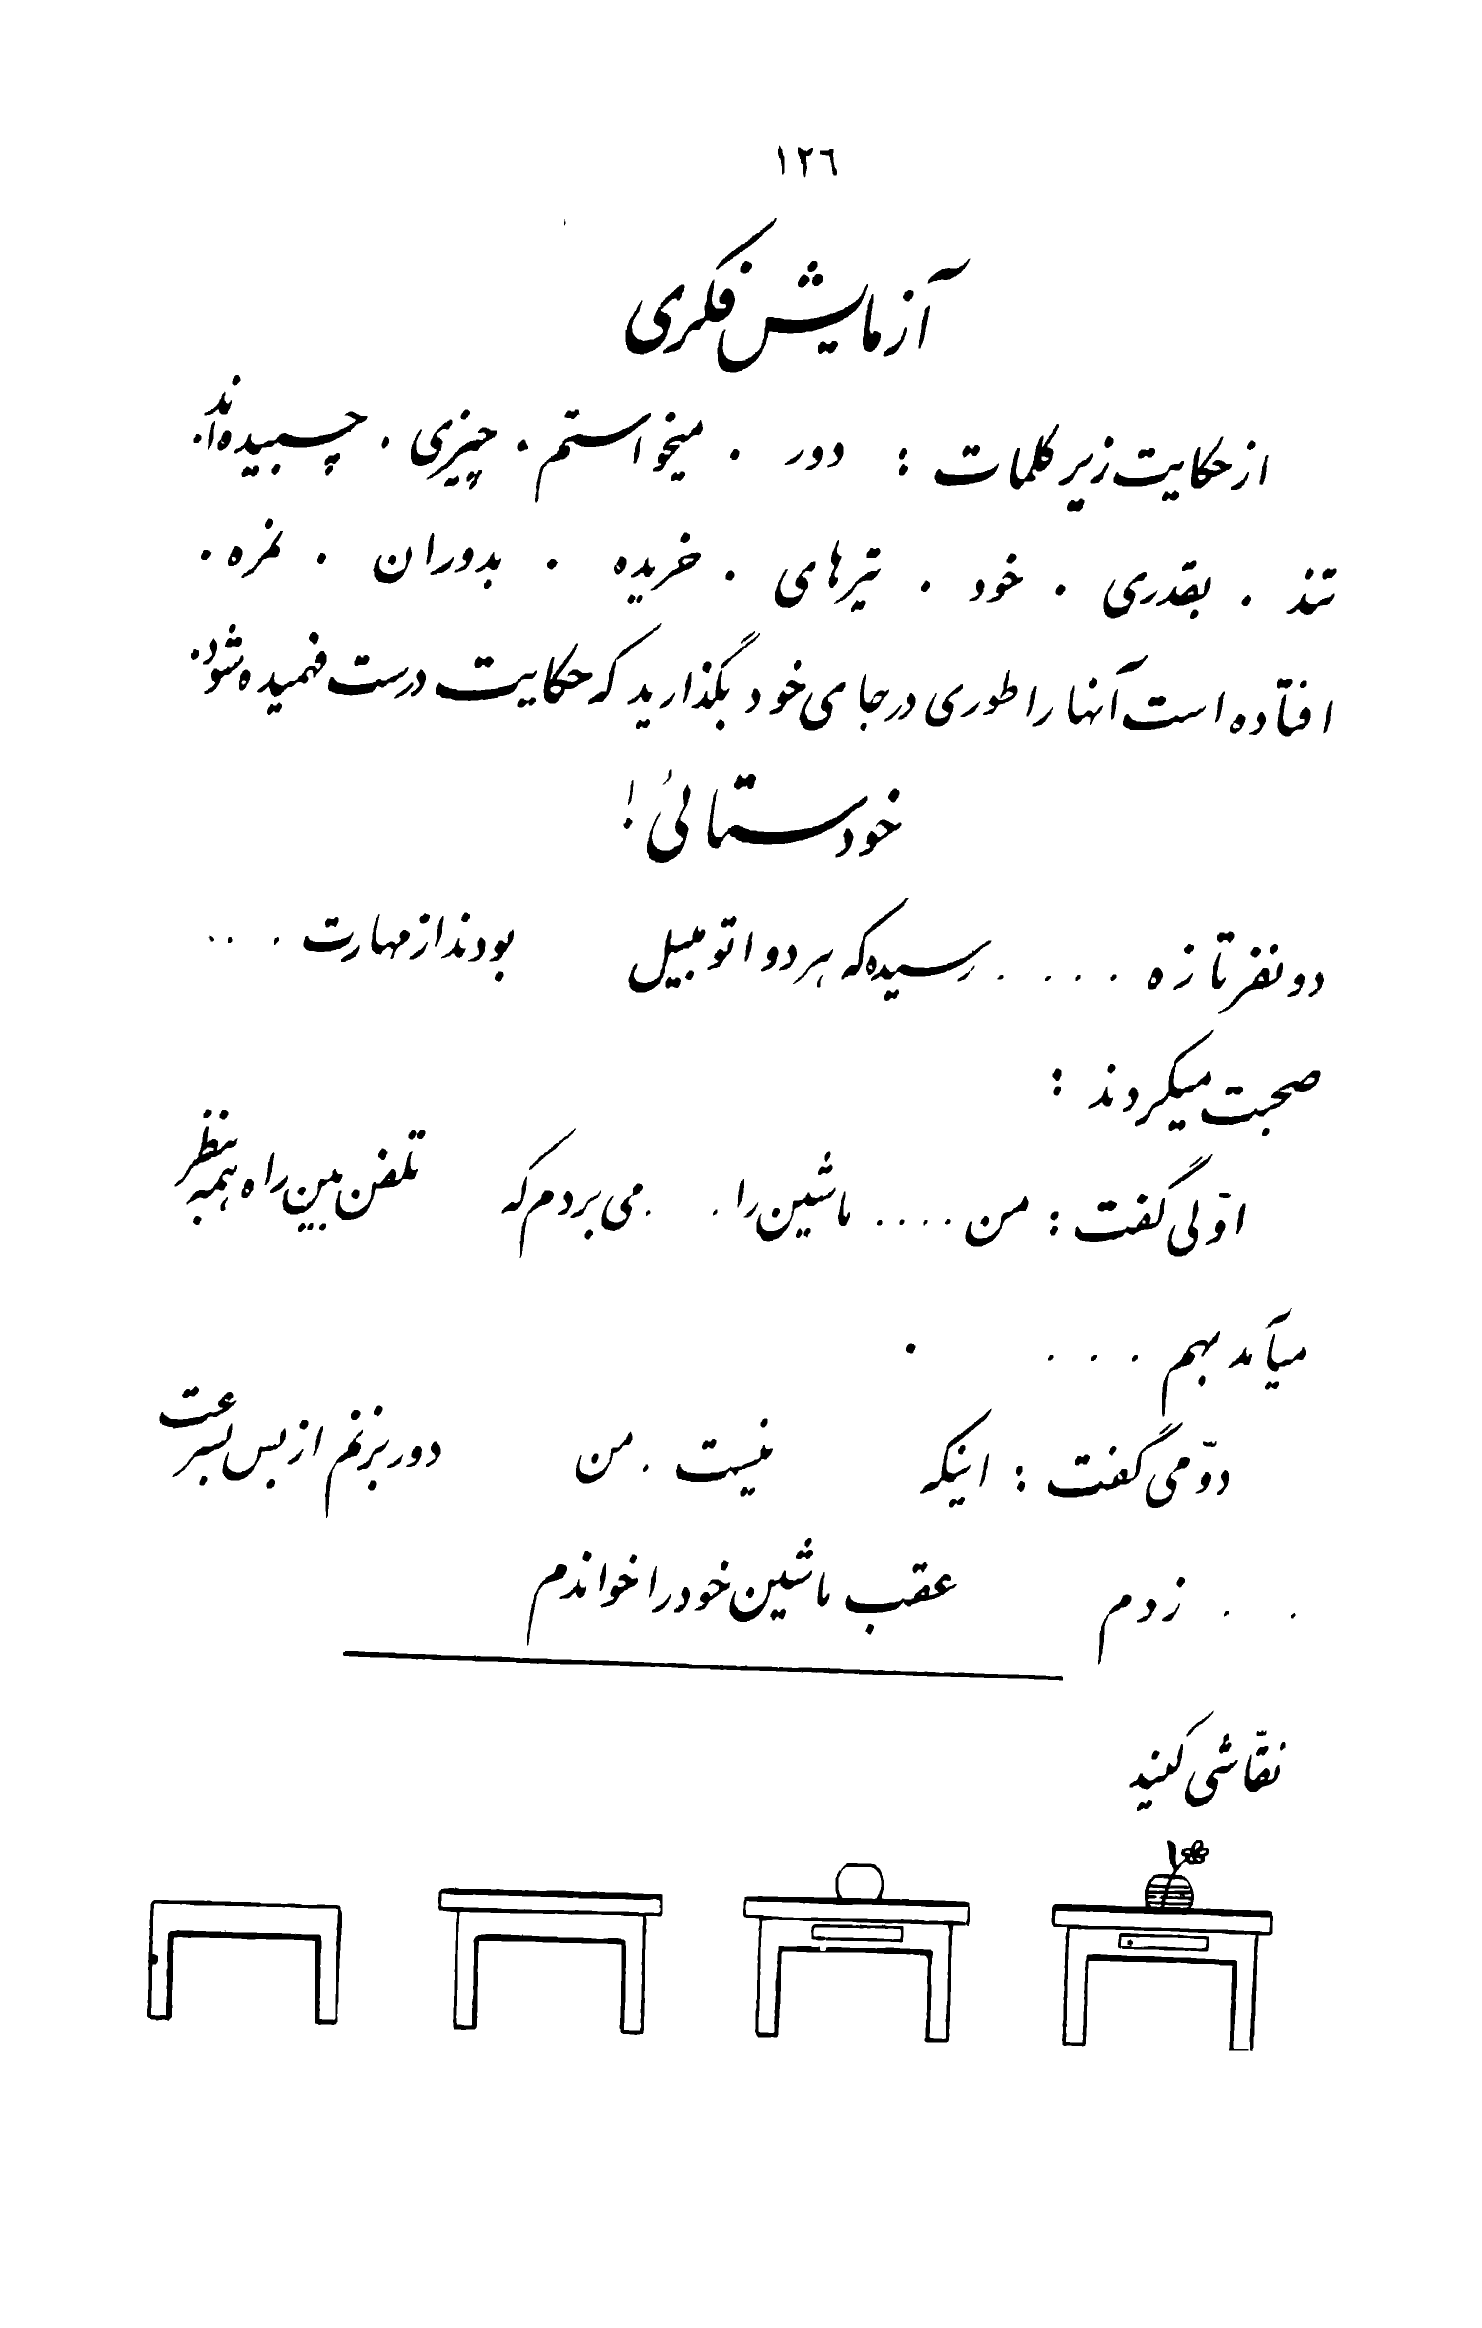 ١٢٦
آزمایش فکری
از حکایت زیر کلمات : دور . میخواستم . چیزی . چسبیده‌اند .
تند . بقدری . خود . تیرهای . خریده . بدوران . نمره .
افتاده است آنها را طوری در جای خود بگذارید که حکایت درست فهمیده شود .
خودستائی !
دو نفر تازه . . . . رسیده که هر دو اتومبیل بودند از مهارت . . .
صحبت میکردند :
اوّلی گفت : من . . . . ماشین را . . می بردم که تلفن بین راه همه بنظر
میآمد بهم . . . .
دوّمی گفت : اینکه نیست . من دور بزنم از بس بسرعت
. . زدم عقب ماشین خود را خواندم
نقّاشی کنید